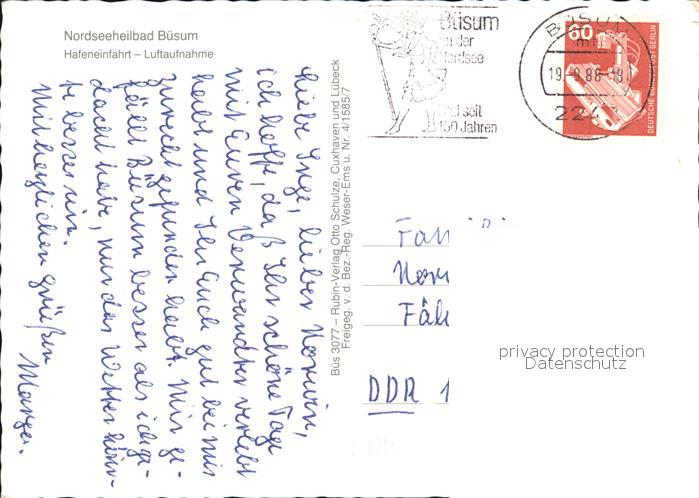 Nordseeheilbad Büsum
Hafeneinfahrt – Luftaufnahme
Büsum
in der
Nordsee
Bad seit
150 Jahren
BÜSUM
19.-9.88-19
224
60
DEUTSCHE BUNDESPOST BERLIN
Liebe Inge, lieber Norwin,
ich hoffe, daß Ihr schöne Tage
mit Euren Verwandten verlebt
habt und Ihr Euch gut bei mir
zurecht gefunden habt. Mir ge-
fällt Büsum besser als ich ge-
dacht habe, nur das Wetter könn-
te besser sein.
Mit herzlichen Grüßen
Marga.
Büs 3077 – Rubin-Verlag Otto Schulze, Cuxhaven und Lübeck
Freigeg. v. d. Bez.-Reg. Weser-Ems u. Nr. 4/1585/7
Fah
Nor
Fäh
DDR 1
privacy protection
Datenschutz